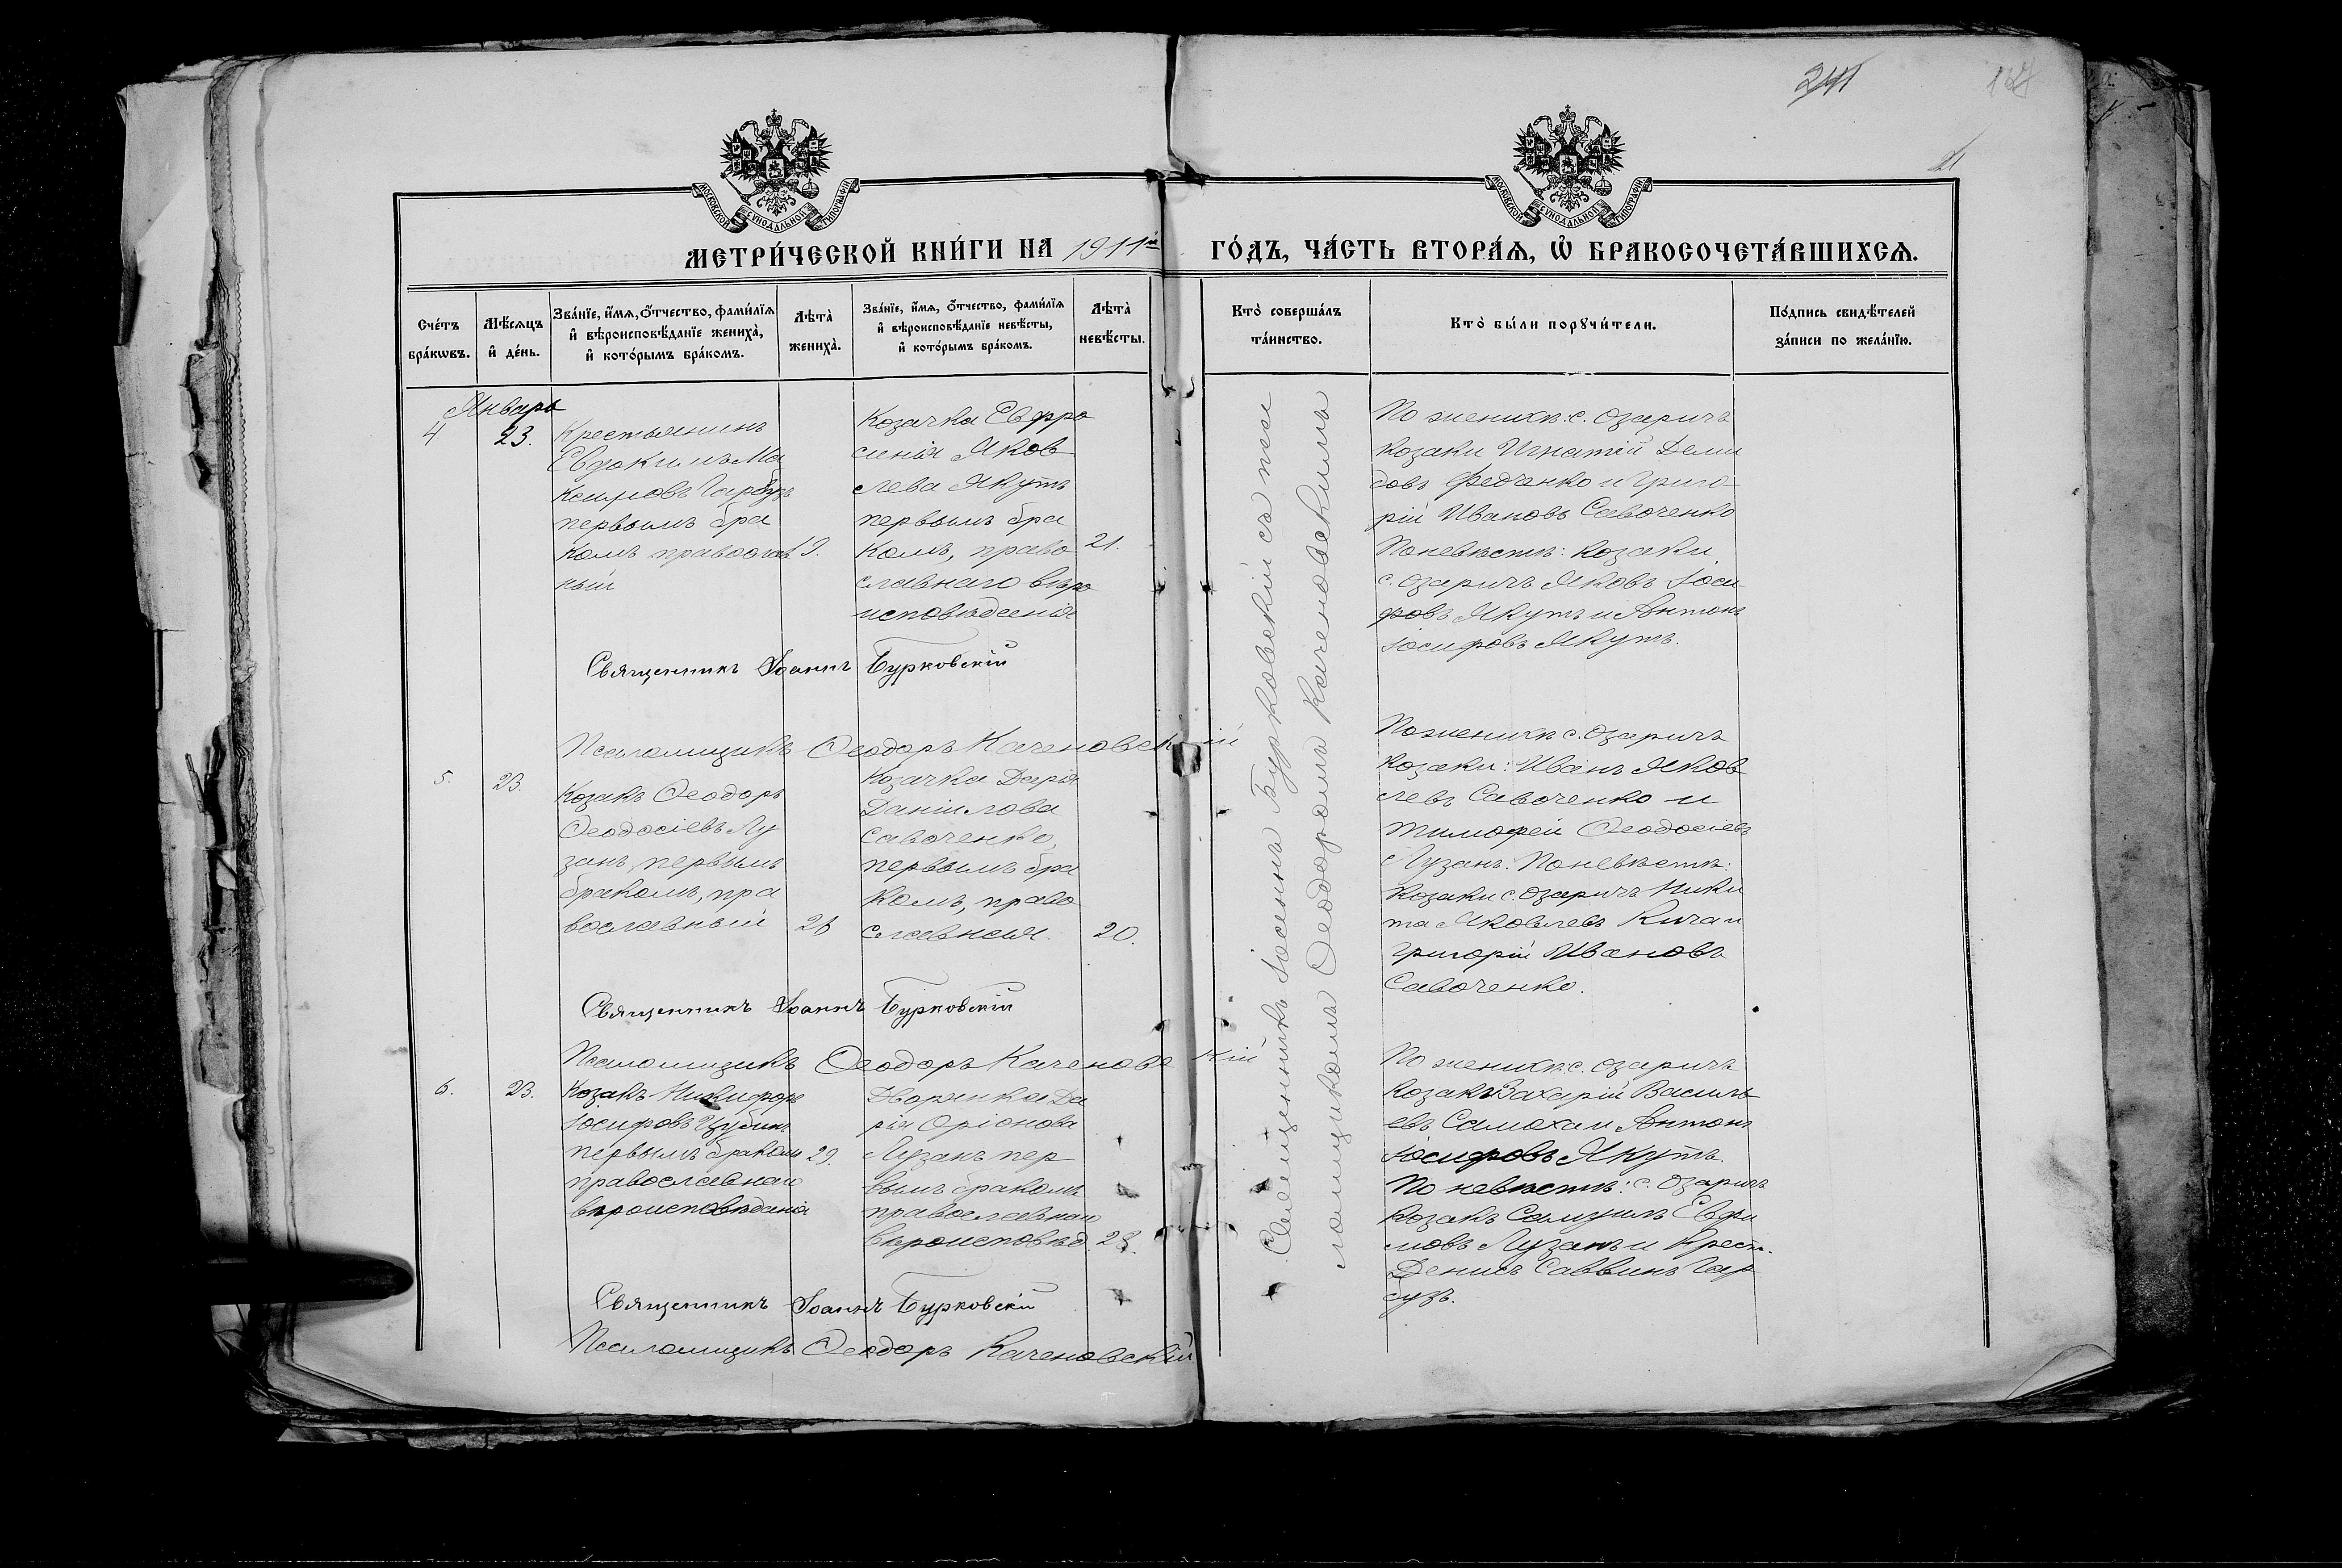 241
МОСКОВСКОЙ СУНОДАЛЬНОЙ ТИПОГРАФІИ
МОСКОВСКОЙ СУНОДАЛЬНОЙ ТИПОГРАФІИ
МЕТРИ́ЧЕСКОЙ КНИ́ГИ НА 1911й ГО́ДЪ, ЧА́СТЬ ВТОРА́Ѧ, Ѽ БРАКОСОЧЕТА́ВШИХСѦ.
Сче́тъ бра́кѡвъ.
Мѣ́сѧцъ и҆ де́нь.
Зва́нїе, и҆́мѧ, ѻ҆́тчество, фами́лїѧ и҆ вѣроисповѣ́данїе жениха̀, и҆ кото́рымъ бра́комъ.
Лѣта̀ жениха̀.
Зва́нїе, и҆́мѧ, ѻ҆́тчество, фами́лїѧ и҆ вѣроисповѣ́данїе невѣ́сты, и҆ кото́рымъ бра́комъ.
Лѣта̀ невѣ́сты.
Кто̀ соверша́лъ та́инство.
Кто̀ бы́ли порꙋчи́тели.
По́дпись свидѣ́телей за́писи по жела́нїю.
Январь
4
23.
Крестьянинъ
Евдокимъ Ма
ксимовъ Гарбузъ
первымъ бра
комъ православ
ный
Козачка Евфро
синія Яков
лева Якутъ
первымъ бра
комъ, право
славнаго вѣро
исповѣданія
21.
По женихѣ: с. Озаричъ
козаки Игнатій Деми
довъ Федченко и Григо
рій Ивановъ Савоченко
По невѣстѣ: козаки
с. Озаричъ Яковъ Іоси
фовъ Якутъ и Антонъ
Іосифовъ Якутъ.
Священникъ Іоаннъ Бурковскій
Псаломщикъ Ѳеодоръ Каченовскій
5.
23.
Козакъ Ѳеодоръ
Ѳеодосіевъ Лу
занъ, первымъ
бракомъ, пра
вославный
Козачка Дарія
Даніилова
Савоченко,
первымъ бра
комъ, право
славная.
20.
По женихѣ с. Озаричъ
козаки: Иванъ Яков
левъ Савоченко и
Тимофей Ѳеодосіевъ
Лузанъ. По невѣстѣ:
козаки с. Озаричъ Ники
та Яковлевъ Кича и
Григорій Ивановъ
Савоченко.
Священникъ Іоаннъ Бурковскій
Псаломщикъ Ѳеодоръ Каченовскій
6.
23.
Козакъ Никифоръ
Іосифовъ
первымъ бракомъ
православнаго
вѣроисповѣданія
29.
Дворянка Да
рія Оріонова
Лузанъ пер
вымъ бракомъ
православнаго
вѣроисповѣд.
28.
По женихѣ: с. Озаричъ
козакъ Захарій Василь
евъ Самоха и Антонъ
Іосифовъ Якутъ.
По невѣстѣ: с. Озаричъ
козакъ Самуилъ Евфи
мовъ Лузанъ и Крест.
Денисъ Саввинъ Гар
бузъ.
Священникъ Іоаннъ Бурковскій
Псаломщикъ Ѳеодоръ Каченовскій
Священникъ Іоаннъ Бурковскій съ пса
ломщикомъ Ѳеодоромъ Каченовскимъ